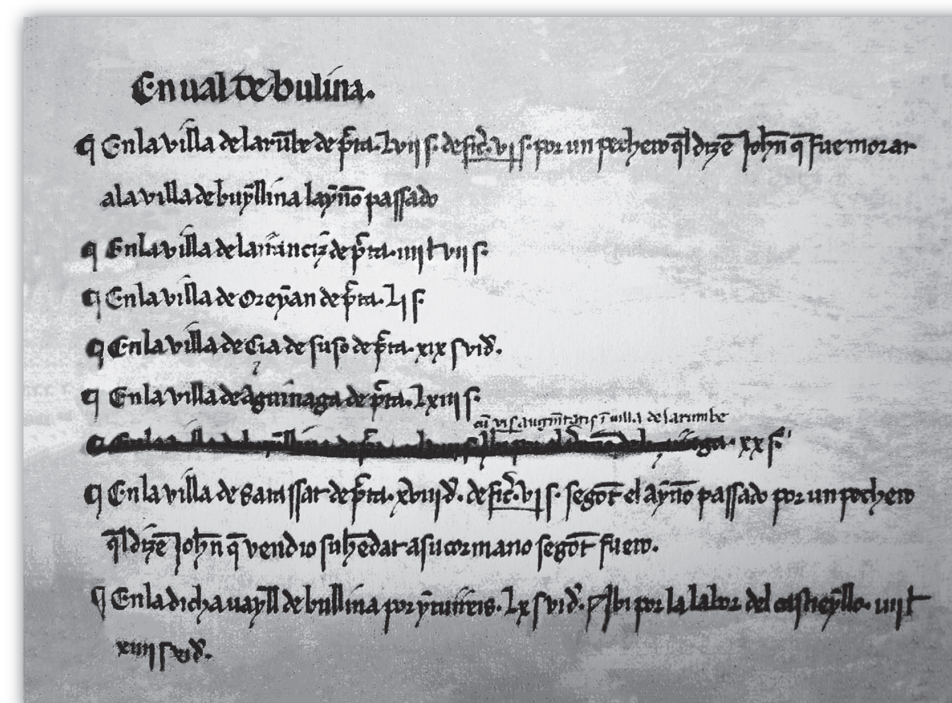 En ual de bulina.
¶ En la villa de larūbe de p̃ta. Lvij s̃. de fic̃. vj s̃. por un pechero q̃l dizē Joħn q̃ fue morar
a la villa de buẏllina laẏño passado
¶ En la villa de de p̃ta. iiij ł vij s̃.
¶ En la villa de Oreẏan de p̃ta. Lj s̃
¶ En la villa de Cia de suso de p̃ta. xix s̃ vi đ.
¶ En la villa de aguinaga de p̃ta. Lxiij s̃.
cū vi s̃ augm̃tatis ī uilla de larumbe
¶ En la villa de xx s̃.
¶ En la villa de Sarassat de p̃ta. xviij đ. de fic̃. vj s̃. segōt el aẏño passado por un pechero
q̃l dizē Joħn q̃ vendio su ħedat a su cormano segōt fuero.
¶ En la dicha uaẏll de bullina por. Lx s̃ vi đ. Ibi por la labor del casteẏllo. iiij ł
xiiij s̃ vi đ.